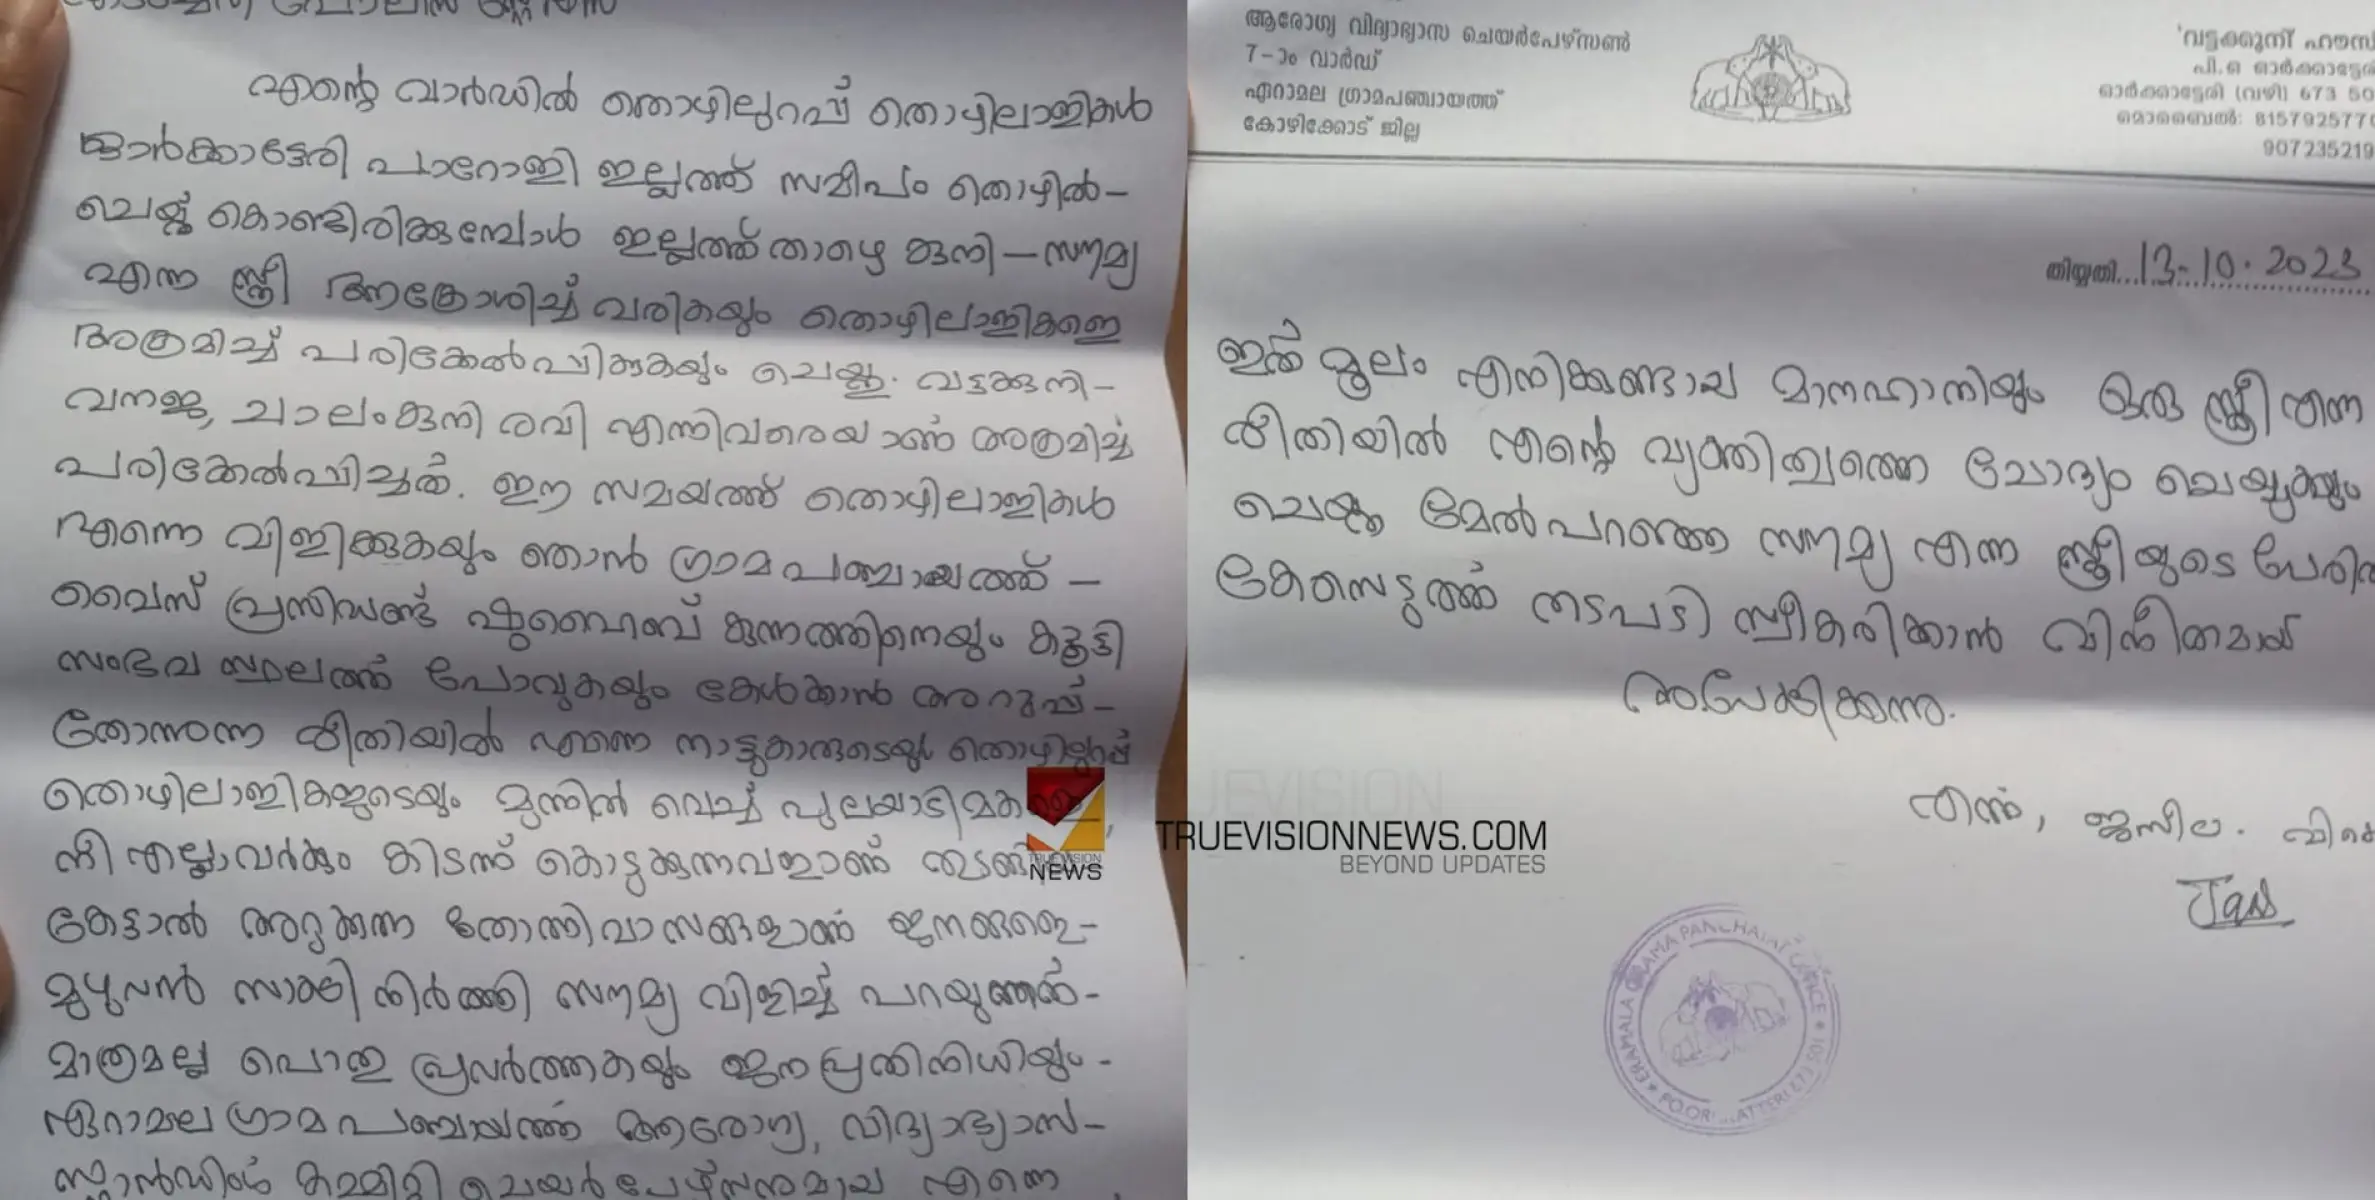 എന്റെ വാർഡിൽ തൊഴിലുറപ്പ് തൊഴിലാളികൾ
ഓർക്കാട്ടേരി പാറോളി ഇല്ലത്ത് സമീപം തൊഴിൽ-
ചെയ്തു കൊണ്ടിരിക്കുമ്പോൾ ഇല്ലത്ത് താഴെ കുനി - സൗമ്യ
എന്ന സ്ത്രീ ആക്രോശിച്ച് വരികയും തൊഴിലാളികളെ
അക്രമിച്ച് പരിക്കേൽപ്പിക്കുകയും ചെയ്തു. വട്ടക്കുനി-
വനജ, ചാലംകുനി രവി എന്നിവരെയാണ് അക്രമിച്ച്
പരിക്കേൽപ്പിച്ചത്. ഈ സമയത്ത് തൊഴിലാളികൾ
എന്നെ വിളിക്കുകയും ഞാൻ ഗ്രാമ പഞ്ചായത്ത് -
വൈസ് പ്രസിഡണ്ട് ഷുഹൈബ് കുന്നത്തിനെയും കൂട്ടി
സംഭവ സ്ഥലത്ത് പോവുകയും കേൾക്കാൻ അറുപ്പ്-
തോന്നുന്ന രീതിയിൽ എന്നെ നാട്ടുകാരുടെയും തൊഴിലുറപ്പ്
തൊഴിലാളികളുടെയും മുന്നിൽ വെച്ച് പുലയാടിമകളെ,
നീ എല്ലാവർക്കും കിടന്ന് കൊടുക്കുന്നവളാണ് തുടങ്ങി
കേട്ടാൽ അറുക്കുന്ന തോന്നിവാസങ്ങളാണ് ജനങ്ങളെ-
മുഴുവൻ സാക്ഷി നിർത്തി സൗമ്യ വിളിച്ച് പറയുന്നത്-
മാത്രമല്ല പൊതു പ്രവർത്തകയും ജനപ്രതിനിധിയും-
ഏറാമല ഗ്രാമ പഞ്ചായത്ത് ആരോഗ്യ, വിദ്യാഭ്യാസ-
സ്റ്റാൻഡിംഗ് കമ്മിറ്റി ചെയർപേഴ്സനുമായ എന്നെ
ആരോഗ്യ വിദ്യാഭ്യാസ ചെയർപേഴ്സൺ
7-ാം വാർഡ്
ഏറാമല ഗ്രാമപഞ്ചായത്ത്
കോഴിക്കോട് ജില്ല
'വട്ടക്കുനി ഹൗസ്
പി.ഒ ഓർക്കാട്ടേരി
ഓർക്കാട്ടേരി (വഴി) 673 50
മൊബൈൽ: 815792577
907235219
തിയ്യതി...13-10-2023
ഇത് മൂലം എനിക്കുണ്ടായ മാനഹാനിയും ഒരു സ്ത്രീ എന്ന
രീതിയിൽ എന്റെ വ്യക്തിത്വത്തെ ചോദ്യം ചെയ്യുകയും
ചെയ്ത മേൽപറഞ്ഞ സൗമ്യ എന്ന സ്ത്രീയുടെ പേരിൽ
കേസെടുത്ത് നടപടി സ്വീകരിക്കാൻ വിനീതമായ്
അപേക്ഷിക്കുന്നു.
എന്ന്, ജസീല. വികെ
Jas
TRUEVISION
NEWS
TRUEVISIONNEWS.COM
BEYOND UPDATES
ERAMALA GRAMA PANCHAYAT OFFICE